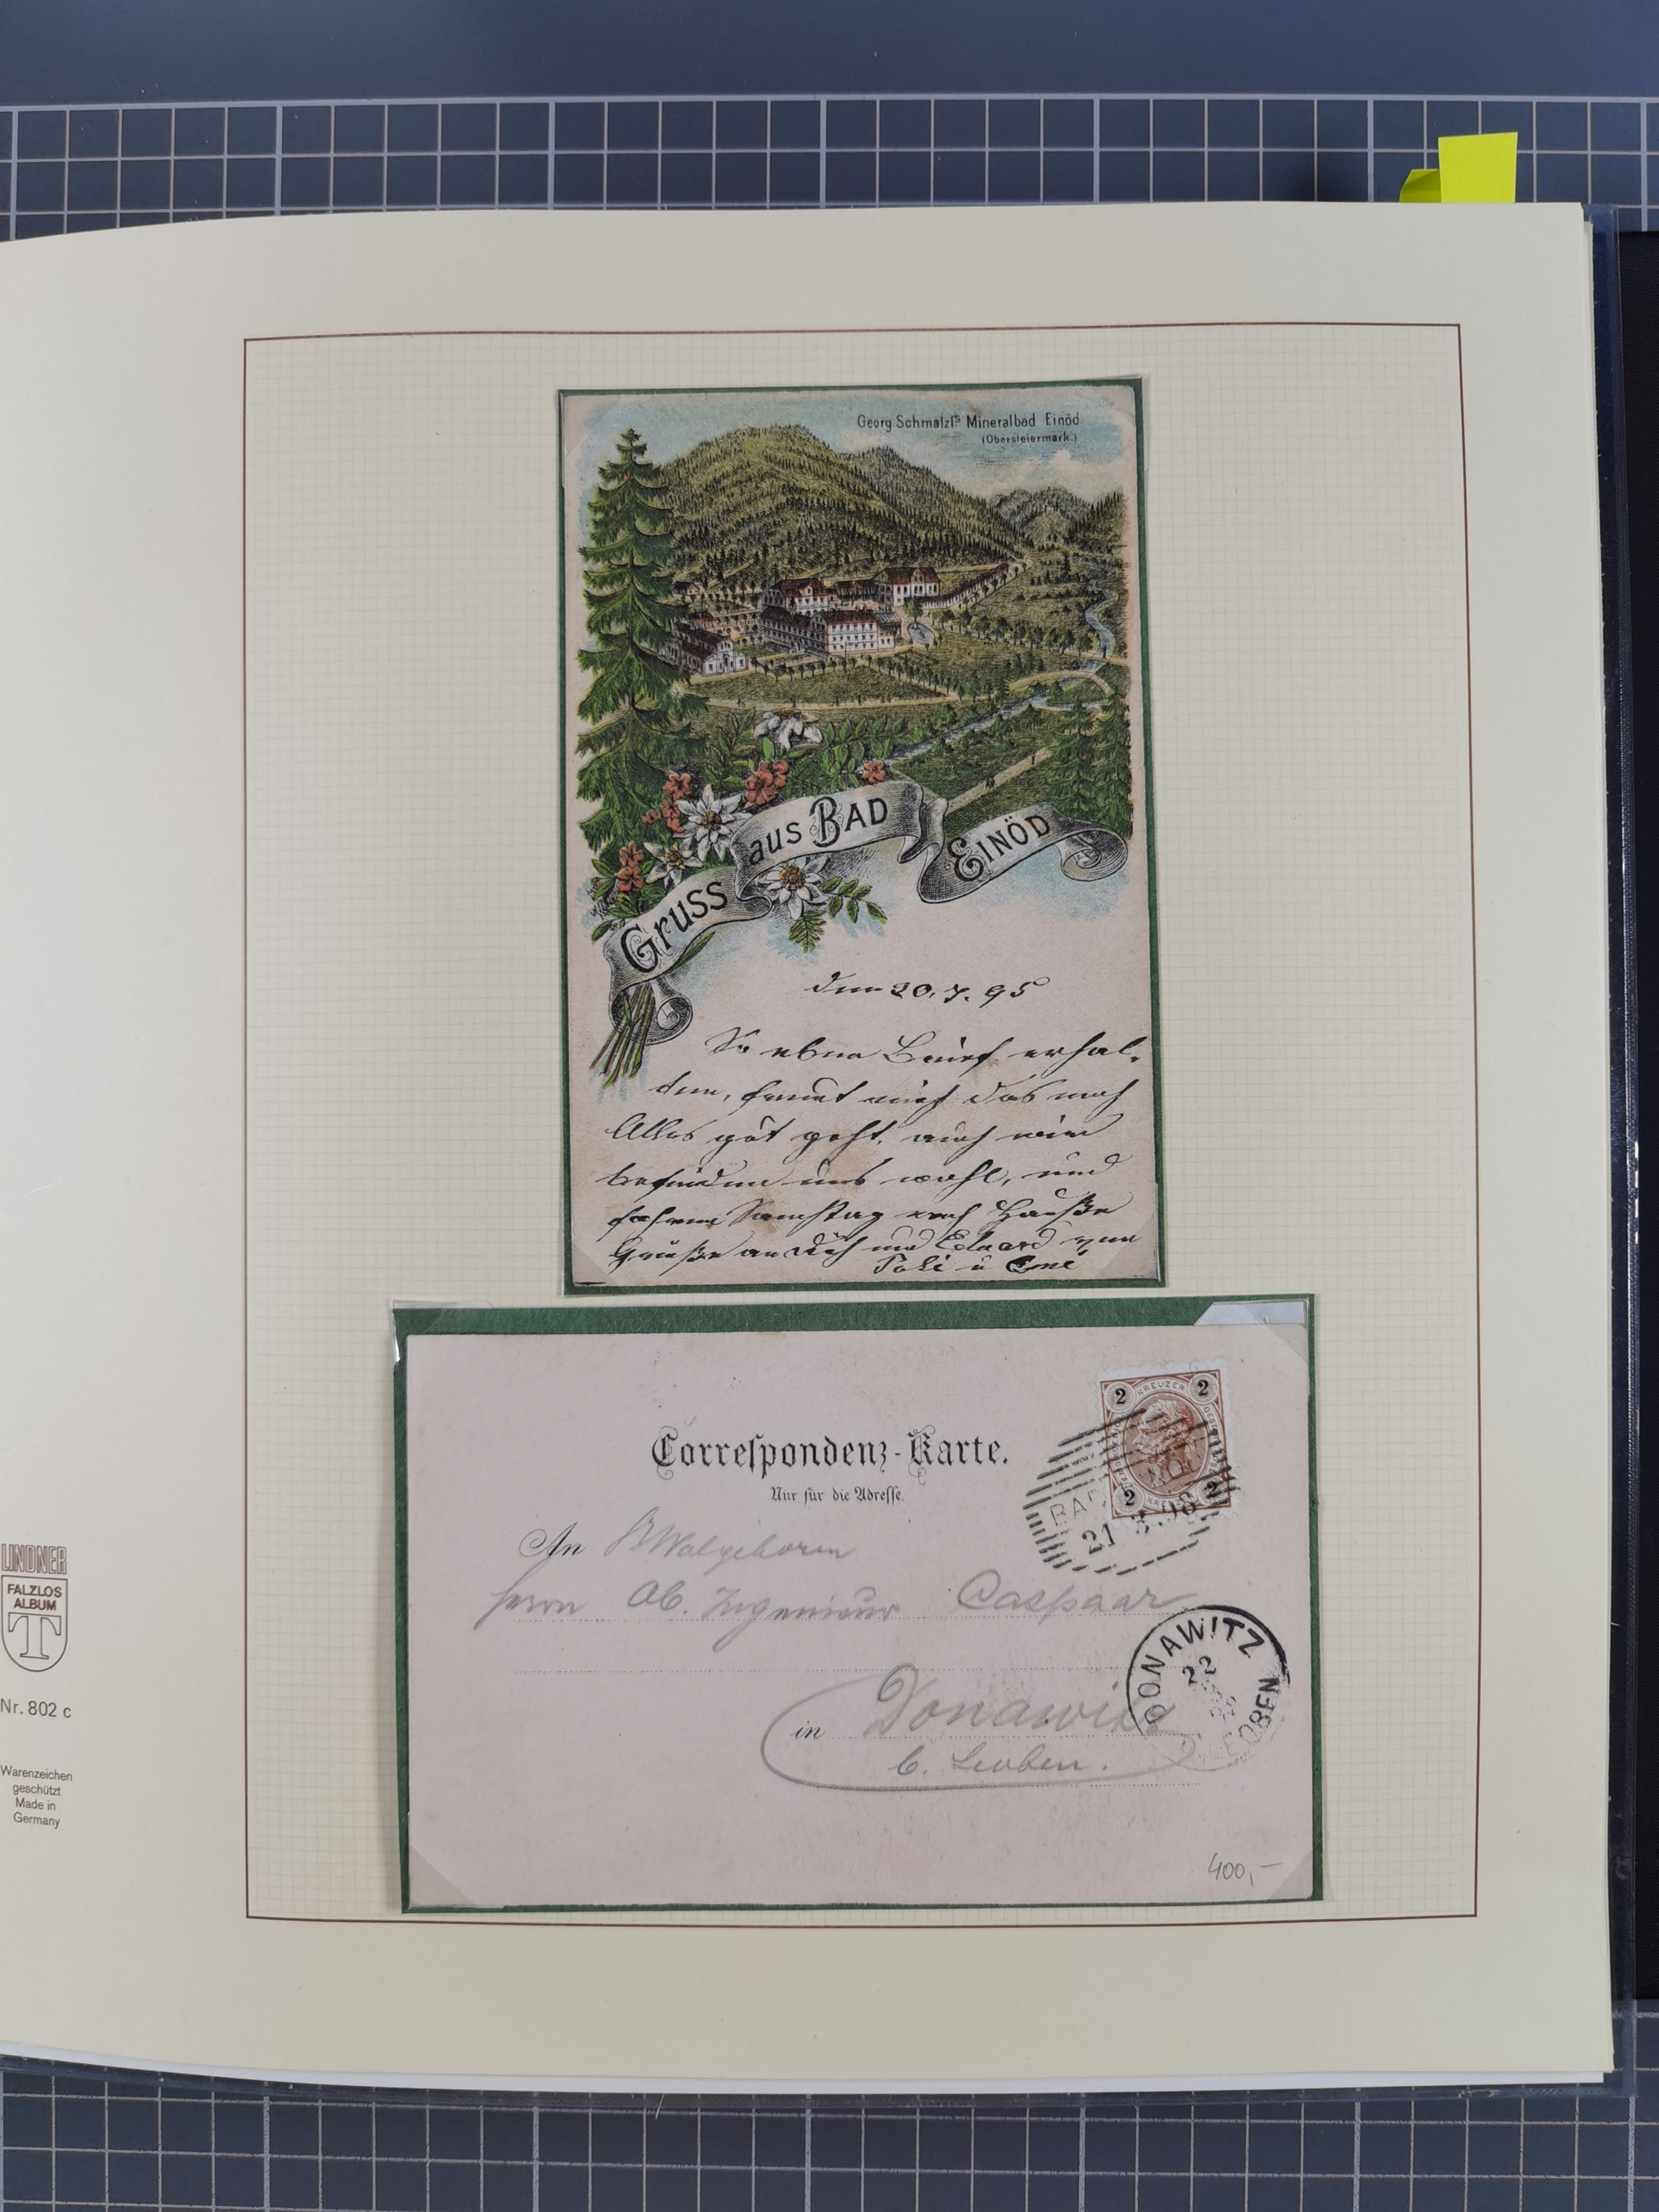 Georg Schmalzl's Mineralbad Einöd
(Obersteiermark.)
Gruss aus BAD EINÖD
den 20.7.95
So eben Brief erhal-
ten, freut mich das noch
Alles gut geht. auch wir
befinden uns wohl, und
fahren Samstag nach Hauße
Grüße an Dich und Eduard von
u
Correspondenz-Karte.
Nur für die Adresse.
2 KREUZER 2
2 2
BAD
21 .98
An Wolgeboren
Herrn Ob. Ingenieur Caspaar
in Donawitz
b. Leoben.
DONAWITZ
22
LEOBEN
400,-
LINDNER
FALZLOS
ALBUM
T
Nr. 802 c
Warenzeichen
geschützt
Made in
Germany